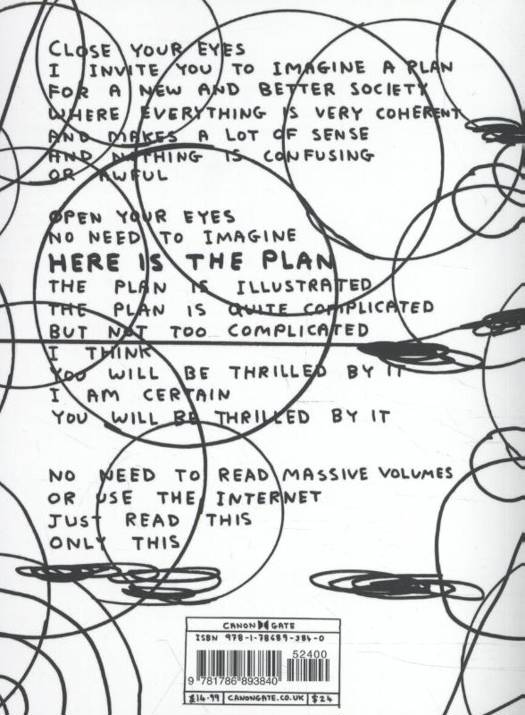 CLOSE YOUR EYES
I INVITE YOU TO IMAGINE A PLAN
FOR A NEW AND BETTER SOCIETY
WHERE EVERYTHING IS VERY COHERENT
AND MAKES A LOT OF SENSE
AND NOTHING IS CONFUSING
OR AWFUL
OPEN YOUR EYES
NO NEED TO IMAGINE
HERE IS THE PLAN
THE PLAN IS ILLUSTRATED
THE PLAN IS QUITE COMPLICATED
BUT NOT TOO COMPLICATED
I THINK
YOU WILL BE THRILLED BY IT
I AM CERTAIN
YOU WILL BE THRILLED BY IT
NO NEED TO READ MASSIVE VOLUMES
OR USE THE INTERNET
JUST READ THIS
ONLY THIS
CANONGATE
ISBN 978-1-78689-384-0
52400
9 781786 893840
£14.99 CANONGATE.CO.UK $24